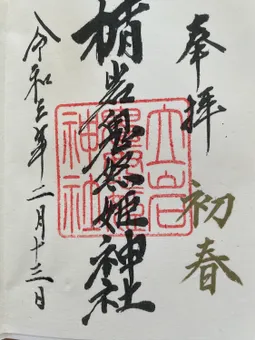 奉拝
初春
楯岩鬼怒姫神社
令和三年二月十三日
神社